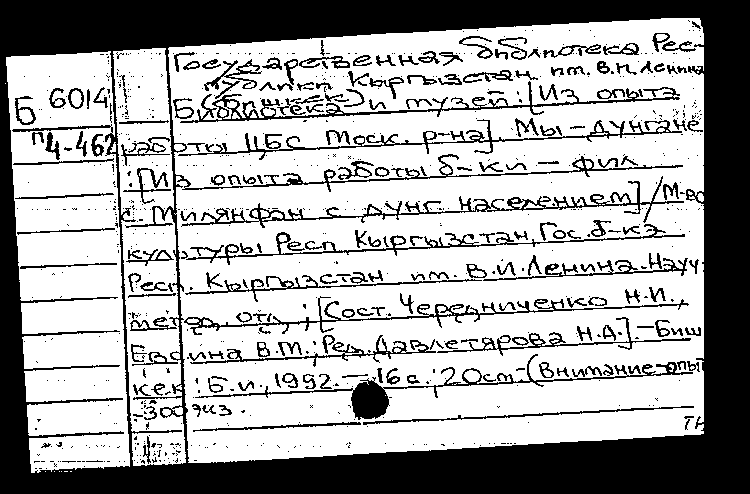 Государственная библиотека Рес-
публики Кыргызстан им. В.И. Ленина
(Бишкек)
Б 6014
Библиотека и музей: [Из опыта
П4-462
работы ЦБС Моск. р-на]. Мы – дунгане
: [Из опыта работы б-ки – фил.
с. Милянфан с дунг. населением] / М-во
культуры Респ. Кыргызстан, Гос. б-ка
Респ. Кыргызстан им. В.И. Ленина. Науч.-
метод. отд.; [Сост. Чередниченко Н.И.,
Евсина В.М.; Ред. Давлетярова Н.А.]. – Биш
кек : Б.и., 1992. – 16 с.; 20 см. – (Внимание – опыт
300 экз.